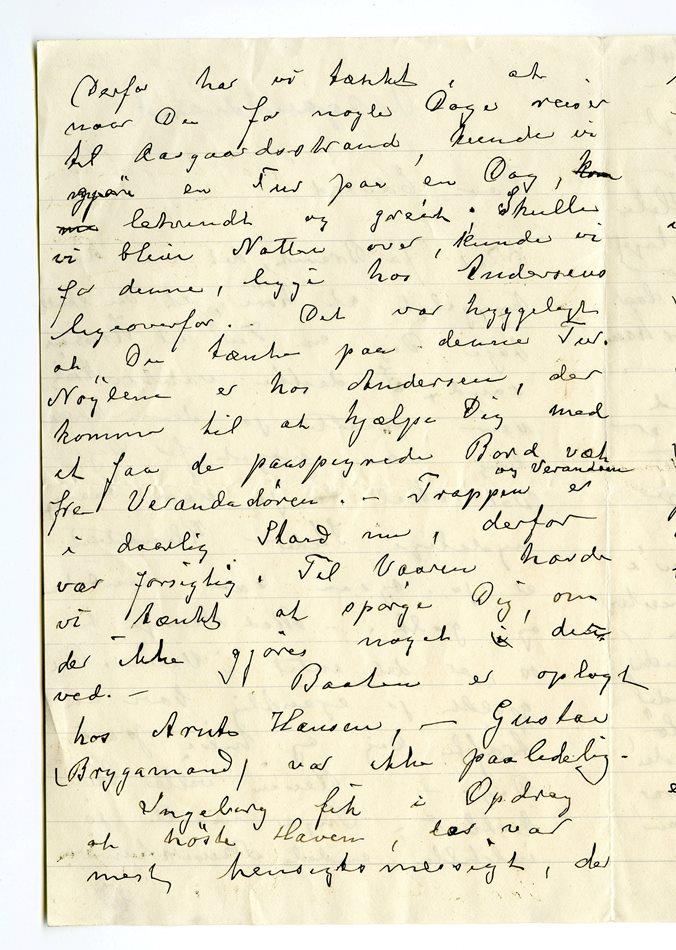 Derfor har vi tænkt, at
naar Du for nogle Dage reiser
til Aargaardsstrand, kunde vi
en Tur paa en Dag,
letvindt og greit. Skulle
vi bleve Natten over, kunde vi
for denne, ligge hos Andersens
ligeoverfor. Det var hyggeligt
at Du tænkte paa denne Tur.
Nøglene er hos Andersen, der
kommer til at hjælpe Dig med
at faa de paaspigrede Bord væk
fra Verandadøren. – Trappen og Verandaen er
i daarlig Stand nu, derfor
vær forsigtig. Til Vaaren havde
vi tænkt at spørge Dig, om
der ikke gjøres noget
ved. – Baaten er oplagt
hos Arnts Hansen, – Gustav
(Bryggamand) var ikke paalidelig. –
Ingeborg fik i Opdrag
at høste Haven, var
mest hensigtsmæssigt, da